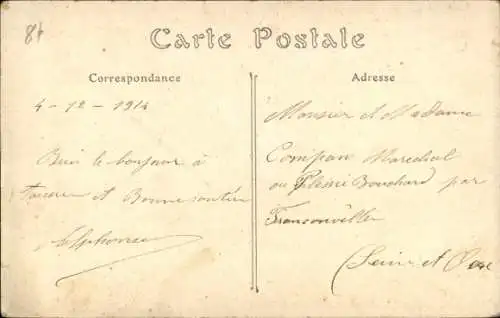 8f
Carte Postale
Correspondance
Adresse
4-12-1914
Bien le bonjour à
et Bonne santée
Alphonse
Monsieur et Madame
Compan Marechal
au Plessi Bouchard par
Franconville
(Seine et Oise